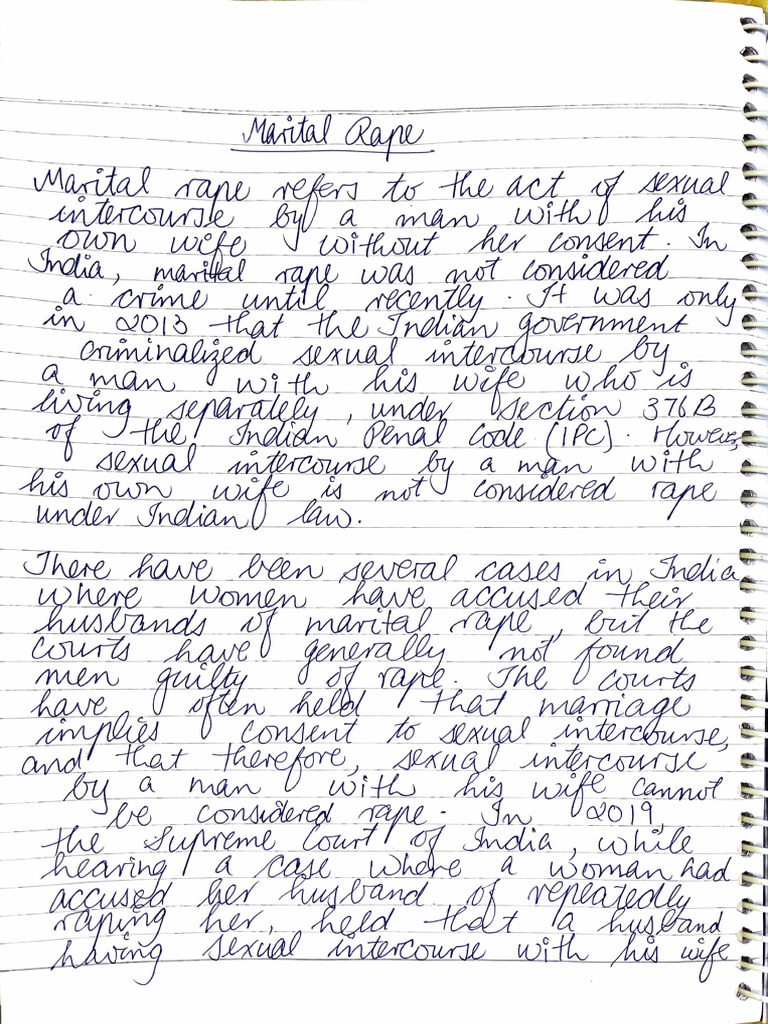 Marital Rape
Marital rape refers to the act of sexual
intercourse by a man with his
own wife without her consent. In
India, marital rape was not considered
a crime until recently. It was only
in 2013 that the Indian government
criminalized sexual intercourse by
a man with his wife who is
living separately, under section 376B
of the Indian Penal Code (IPC). However,
sexual intercourse by a man with
his own wife is not considered rape
under Indian law.
There have been several cases in India
where women have accused their
husbands of marital rape, but the
courts have generally not found
men guilty of rape. The courts
have often held that marriage
implies consent to sexual intercourse,
and that therefore, sexual intercourse
by a man with his wife cannot
be considered rape. In 2019,
the Supreme Court of India, while
hearing a case where a woman had
accused her husband of repeatedly
raping her, held that a husband
having sexual intercourse with his wife